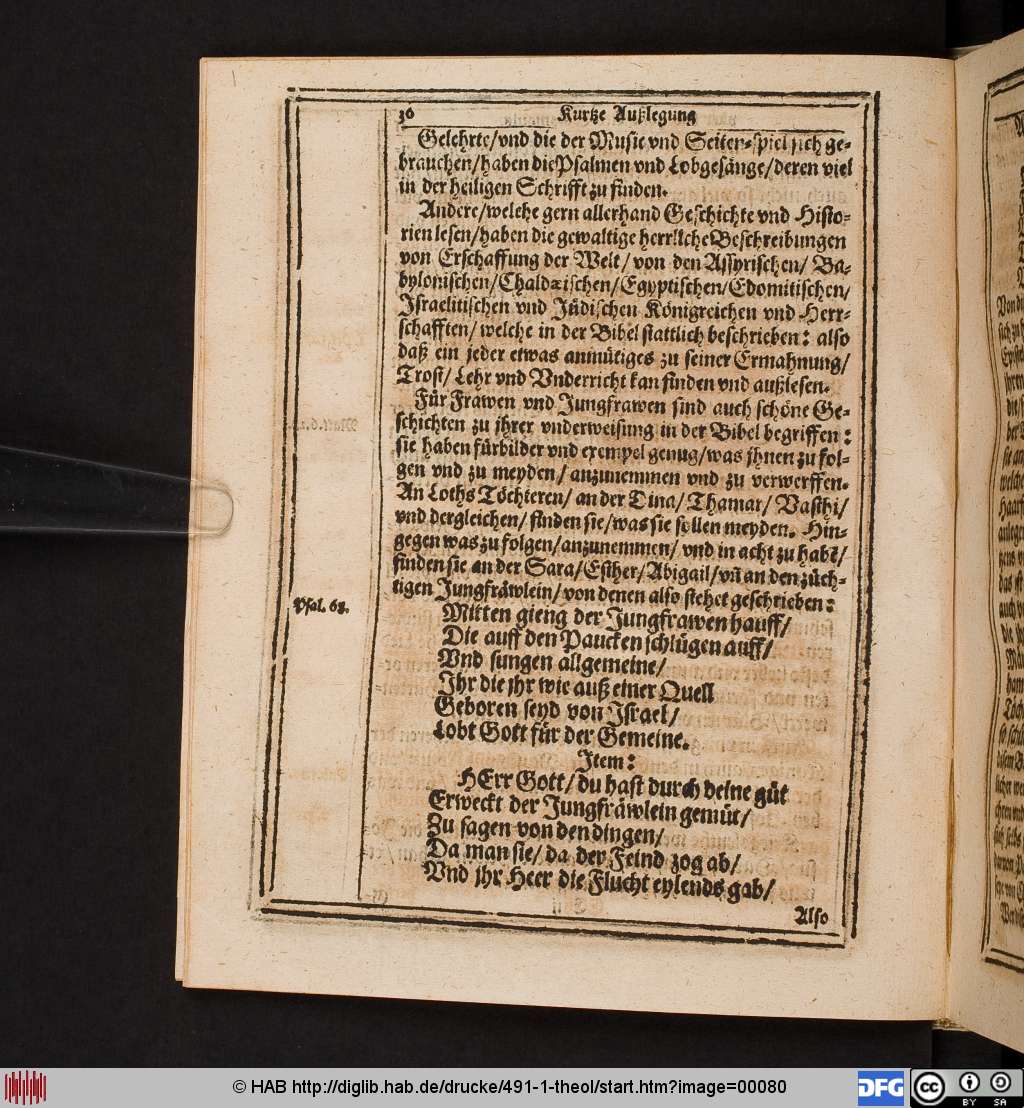 36 Kurtze Außlegung
Gelehrte/vnd die der Music vnd Seiten-spiel sich ge-
brauchen/haben die Psalmen vnd Lobgesänge/deren viel
in der heiligen Schrifft zu finden.
Andere/welche gern allerhand Geschichte vnd Histo-
rien lesen/haben die gewaltige herrliche Beschreibungen
von Erschaffung der Welt/ von den Assyrischen/ Ba-
bylonischen/Chaldæischen/Egyptischen/Edomitischen/
Israelitischen vnd Jüdischen Königreichen vnd Herr-
schafften/ welche in der Bibel stattlich beschrieben: also
daß ein jeder etwas anmütiges zu seiner Ermahnung/
Trost/ Lehr vnd Vnderricht kan finden vnd außlesen.
Für Frawen vnd Jungfrawen sind auch schöne Ge-
schichten zu jhrer vnderweisung in der Bibel begriffen:
sie haben fürbilder vnd exempel genug/was jhnen zu fol-
gen vnd zu meyden/ anzunemmen vnd zu verwerffen.
An Loths Töchteren/ an der Dina/ Thamar/ Vasthi/
vnd dergleichen/ finden sie/was sie sollen meyden. Hin-
gegen was zu folgen/anzunemmen/ vnd in acht zu habē/
finden sie an der Sara/Esther/Abigail/vñ an den züch-
tigen Jungfräwlein/ von denen also stehet geschrieben:
Psal. 68.
Mitten gieng der Jungfrawen hauff/
Die auff den Paucken schlügen auff/
Vnd sungen allgemeine/
Ihr die jhr wie auß einer Quell
Geboren seyd von Israel/
Lobt Gott für der Gemeine.
Item:
HErr Gott/ du hast durch deine güt
Erweckt der Jungfräwlein gemüt/
Zu sagen von den dingen/
Da man sie/ da der Feind zog ab/
Vnd jhr Heer die Flucht eylends gab/
Also
© HAB http://diglib.hab.de/drucke/491-1-theol/start.htm?image=00080
DFG
cc BY SA